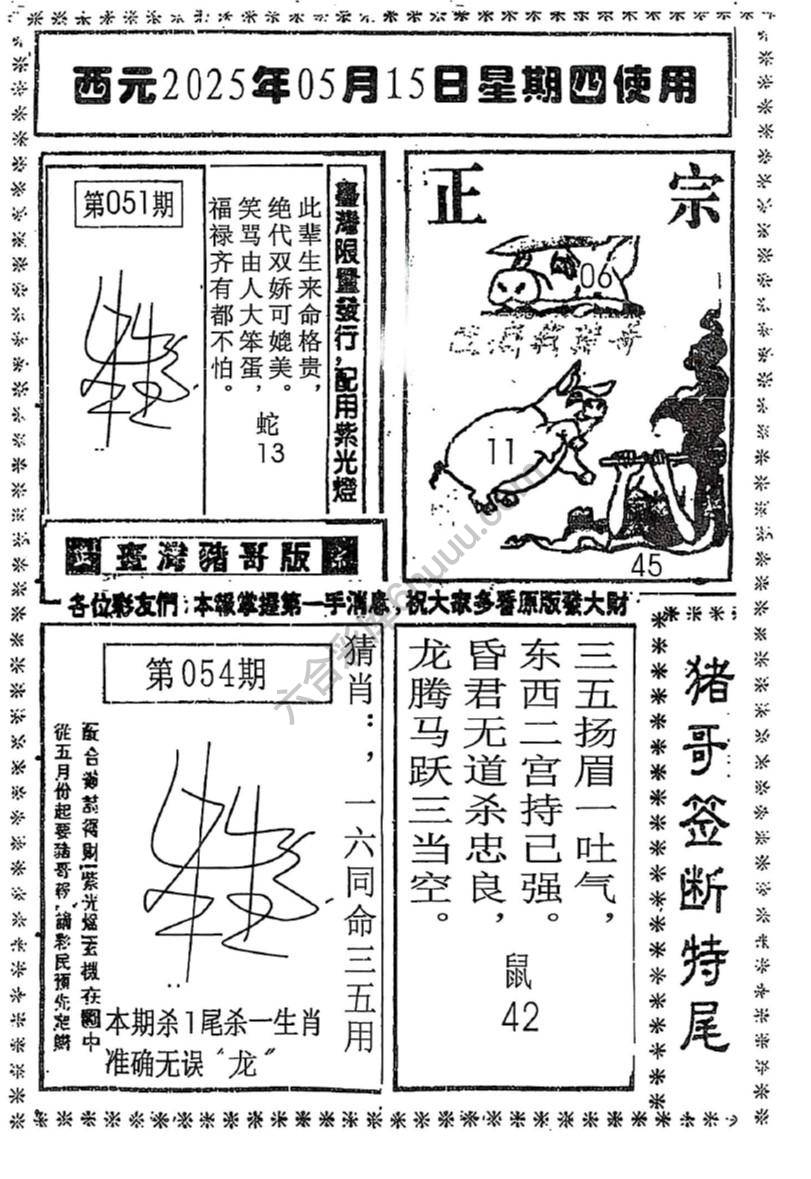 西元2025年05月15日星期四使用
第051期
臺灣限量發行，配用紫光燈
此辈生来命格贵，
绝代双娇可媲美。
笑骂由人大笨蛋，
福禄齐有都不怕。
蛇
13
正宗
06
11
45
臺灣豬哥版
各位彩友們：本報掌握第一手消息，祝大家多看原版發大財
第054期
猜肖：，一六同命三五用
從五月份起要豬哥報，請彩民預先定購
本期杀1尾杀一生肖
准确无误“龙”
三五扬眉一吐气，
东西二宫持己强。
昏君无道杀忠良，
龙腾马跃三当空。
鼠
42
猪哥签断特尾